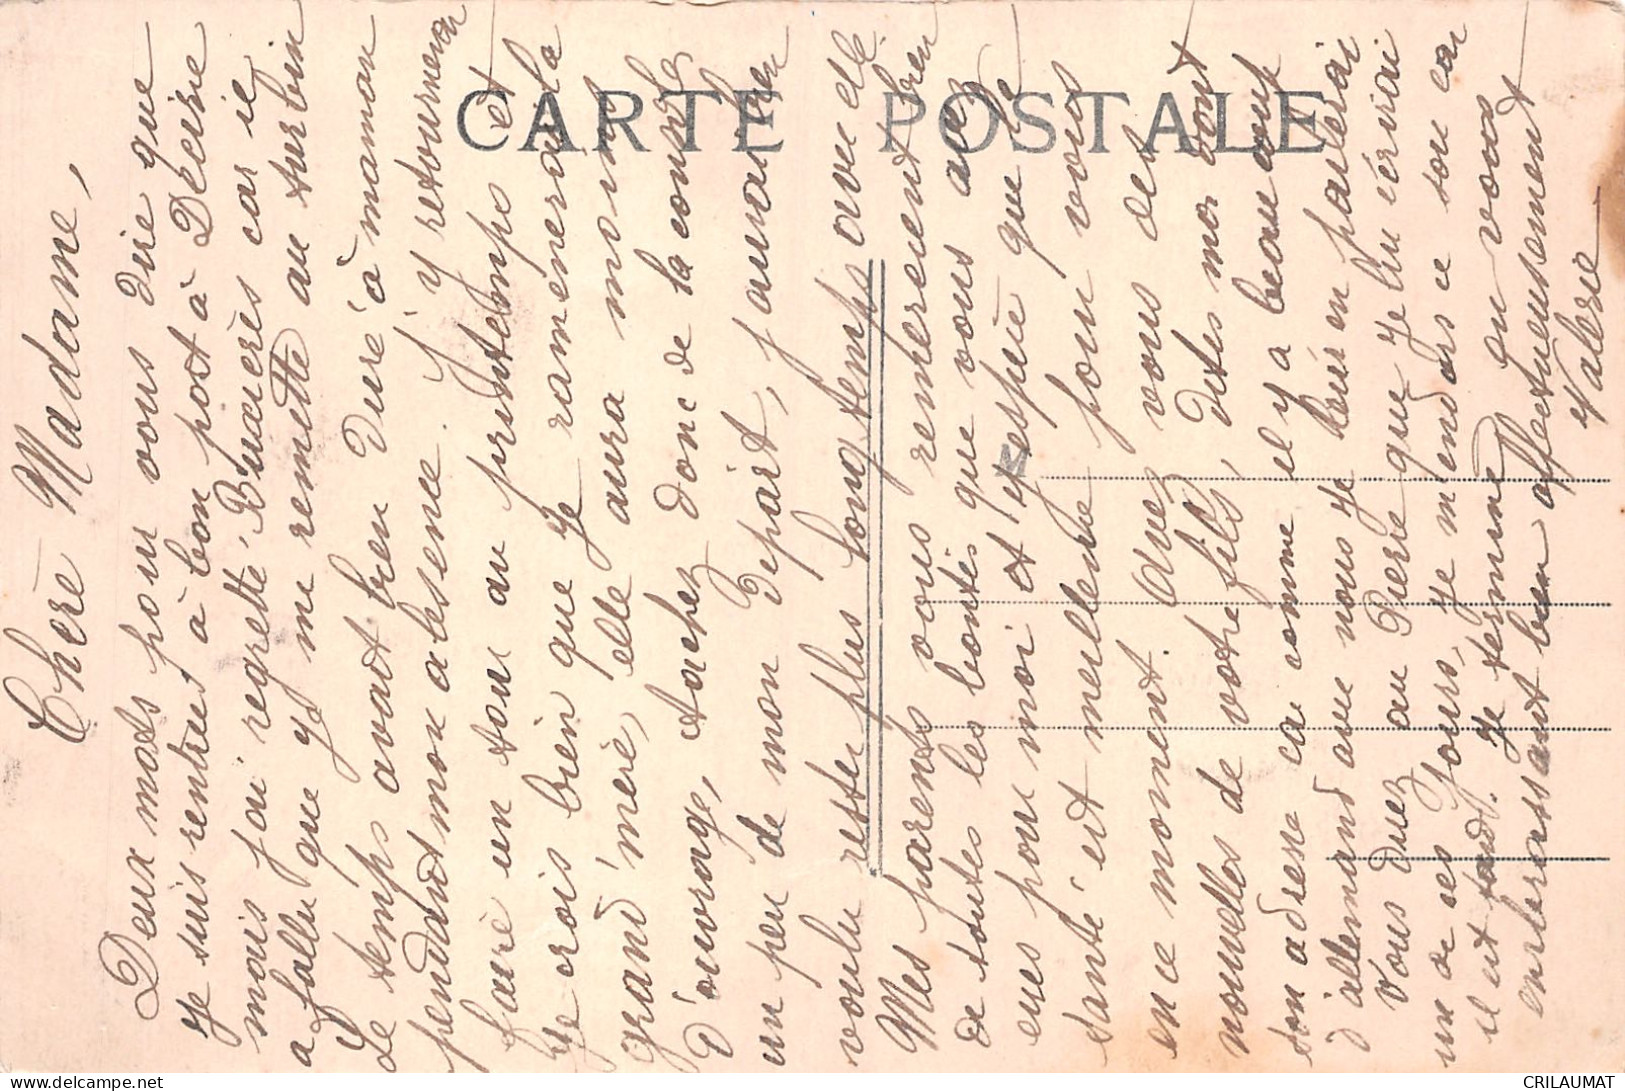 CARTE POSTALE
Chère Madame,
Deux mots pour vous dire que
je suis rentrés à bon port à Decise
mais j'ai regretté Buxières car il
a fallu que je me remette au turbin
Le temps avait bien duré à maman
pendant mon absence. J'y retournerai
faire un tour au printemps et
je crois bien que je ramenerai la
grand'mère, elle aura moins
d'ouvrage, tachez donc de la combler
un peu de mon départ, j'aurai bien
voulu rester plus longtemps avec elle.
Mes parents vous remercient bien
de toutes les bontés que vous avez
eues pour moi et j'espère que le
santé est meilleure pour vous
en ce moment. Avez vous des
nouvelles de votre fils, dites moi dont
son adresse car comme il y a beaucoup
d'allemand avec nous je lui en parlerai
Vous direz au Pierre que je lui écrirai
un de ses jours, je m'endors ce soir car
il est tard. Je termine en vous
embrassant bien affectueusement
Valerie
CRILAUMAT